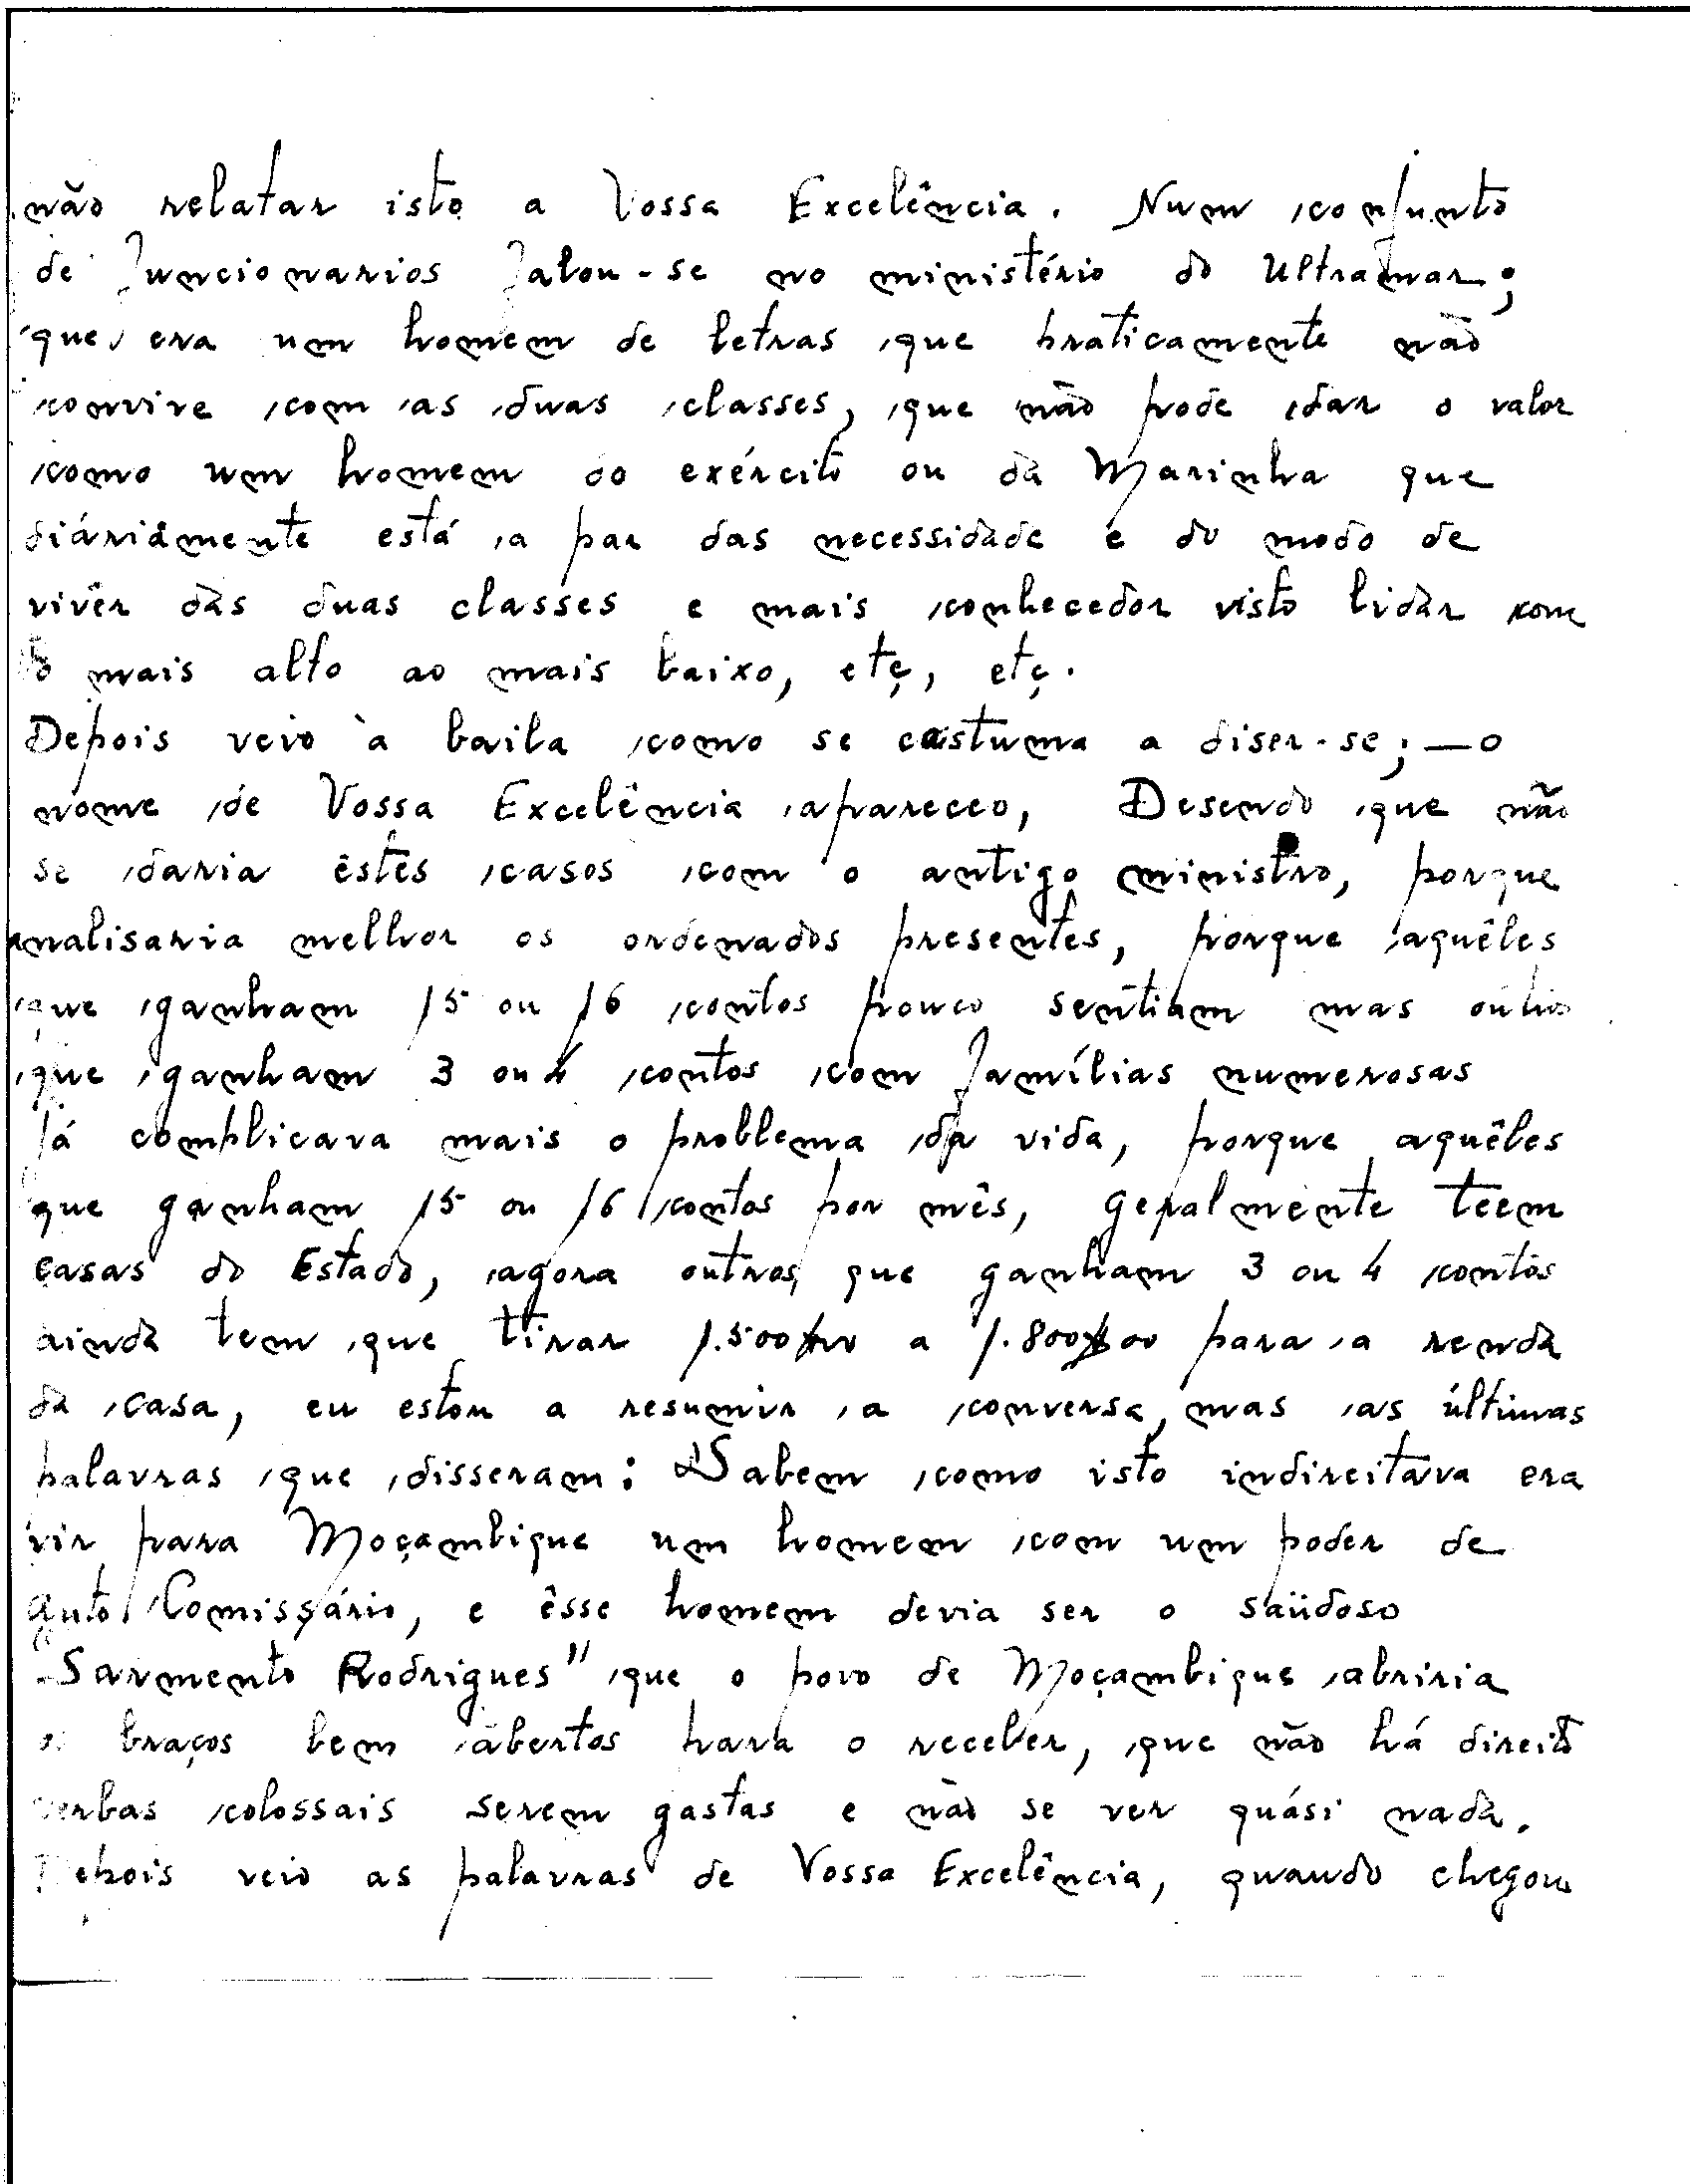 não relatar isto a Vossa Excelência. Num conjunto
de funcionarios falou-se no ministério do Ultramar;
que era um homem de letras que praticamente não
convive com as duas classes, que não pode dar o valor
como um homem do exército ou da Marinha que
diáriamente está a par das necessidade e do modo de
vivêr das duas classes e mais conhecedor visto lidar com
o mais alto ao mais baixo, etç, etç.
Depois veio à baila como se costuma a diser-se; — o
nome de Vossa Excelência apareceo, Desendo que não
se daria êstes casos com o antigo ministro, porque
analisaria melhor os ordenados presentes, porque aquêles
que ganham 15 ou 16 contos pouco sentiam mas outros
que ganham 3 ou 4 contos com famílias numerosas
já complicava mais o problema da vida, porque aquêles
que ganham 15 ou 16 contos por mês, geralmente teem
casas do Estado, agora outros que ganham 3 ou 4 contos
ainda tem que tirar 1.500$00 a 1.800$00 para a renda
da casa, eu estou a resumir a conversa, mas as últimas
palavras que disseram: Sabem como isto indireitava era
vir para Moçambique um homem com um poder de
auto Comissário, e êsse homem devia ser o saüdoso
Sarmento Rodrigues" que o povo de Moçambique abriria
os braços bem abertos para o receber, que não há direito
verbas colossais serem gastas e não se ver quási nada.
Depois veio as palavras de Vossa Excelência, quando chegou